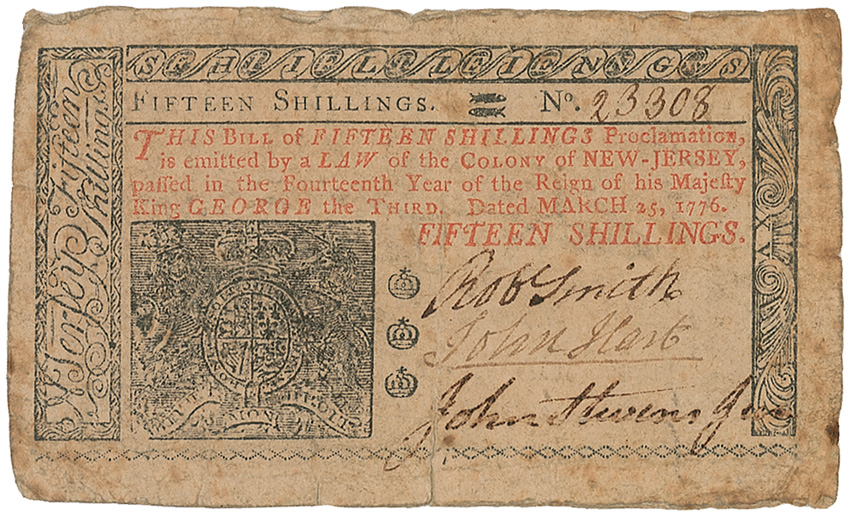 SHILLINGS
FIFTEEN SHILLINGS. No. 23308
THIS BILL of FIFTEEN SHILLINGS Proclamation,
is emitted by a LAW of the COLONY of NEW-JERSEY,
paſſed in the Fourteenth Year of the Reign of his Majeſty
King GEORGE the THIRD. Dated MARCH 25, 1776.
FIFTEEN SHILLINGS.
Rob Smith
John Hart
John Stevens Jun
Jerſey Fifteen
Shillings.